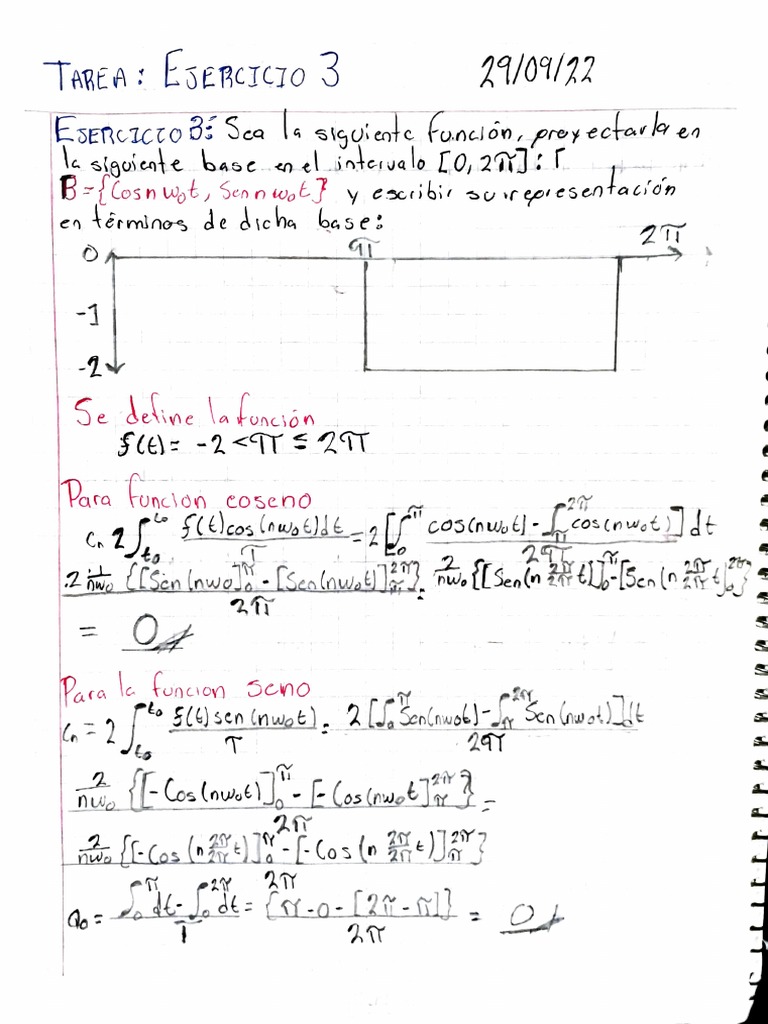 TAREA: EJERCICIO 3 29/09/22
EJERCICIO 3: Sea la siguiente función, proyectarla en
la siguiente base en el intervalo [0, 2π]:
B={Cosnw₀t, Sennw₀t} y escribir su representación
en términos de dicha base:
0 π 2π
-1
-2
Se define la función
f(t)= -2<π≤2π
Para función coseno
Cₙ 2∫ₜ₀^t₀ f(t)cos(nw₀t)dt/T = 2[∫₀^π cos(nw₀t) - ∫π^2π cos(nw₀t)]dt/2π
.2 1/nw₀ {[Sen(nw₀]₀^π - [Sen(nw₀t)]π^2π}/2π . 2/nw₀ {[Sen(n 2π/2π t)]₀^π - [Sen(n 2π/2π t]₀^2π}
= 0
Para la funcion seno
Cₙ = 2∫ₜ₀^t₀ f(t)sen(nw₀t)/T = 2[∫₀^π Sen(nw₀t) - ∫π^2π Sen(nw₀t)]dt/2π
2/nw₀ {[-Cos(nw₀t)]₀^π - [-Cos(nw₀t]π^2π}/2π =
2/nw₀ {[-Cos(n 2π/2π t)]₀^π - [-Cos(n 2π/2π t)]π^2π}/2π
a₀ = ∫₀^π dt - ∫₀^2π dt/T = {π-0-[2π-π]}/2π = 0